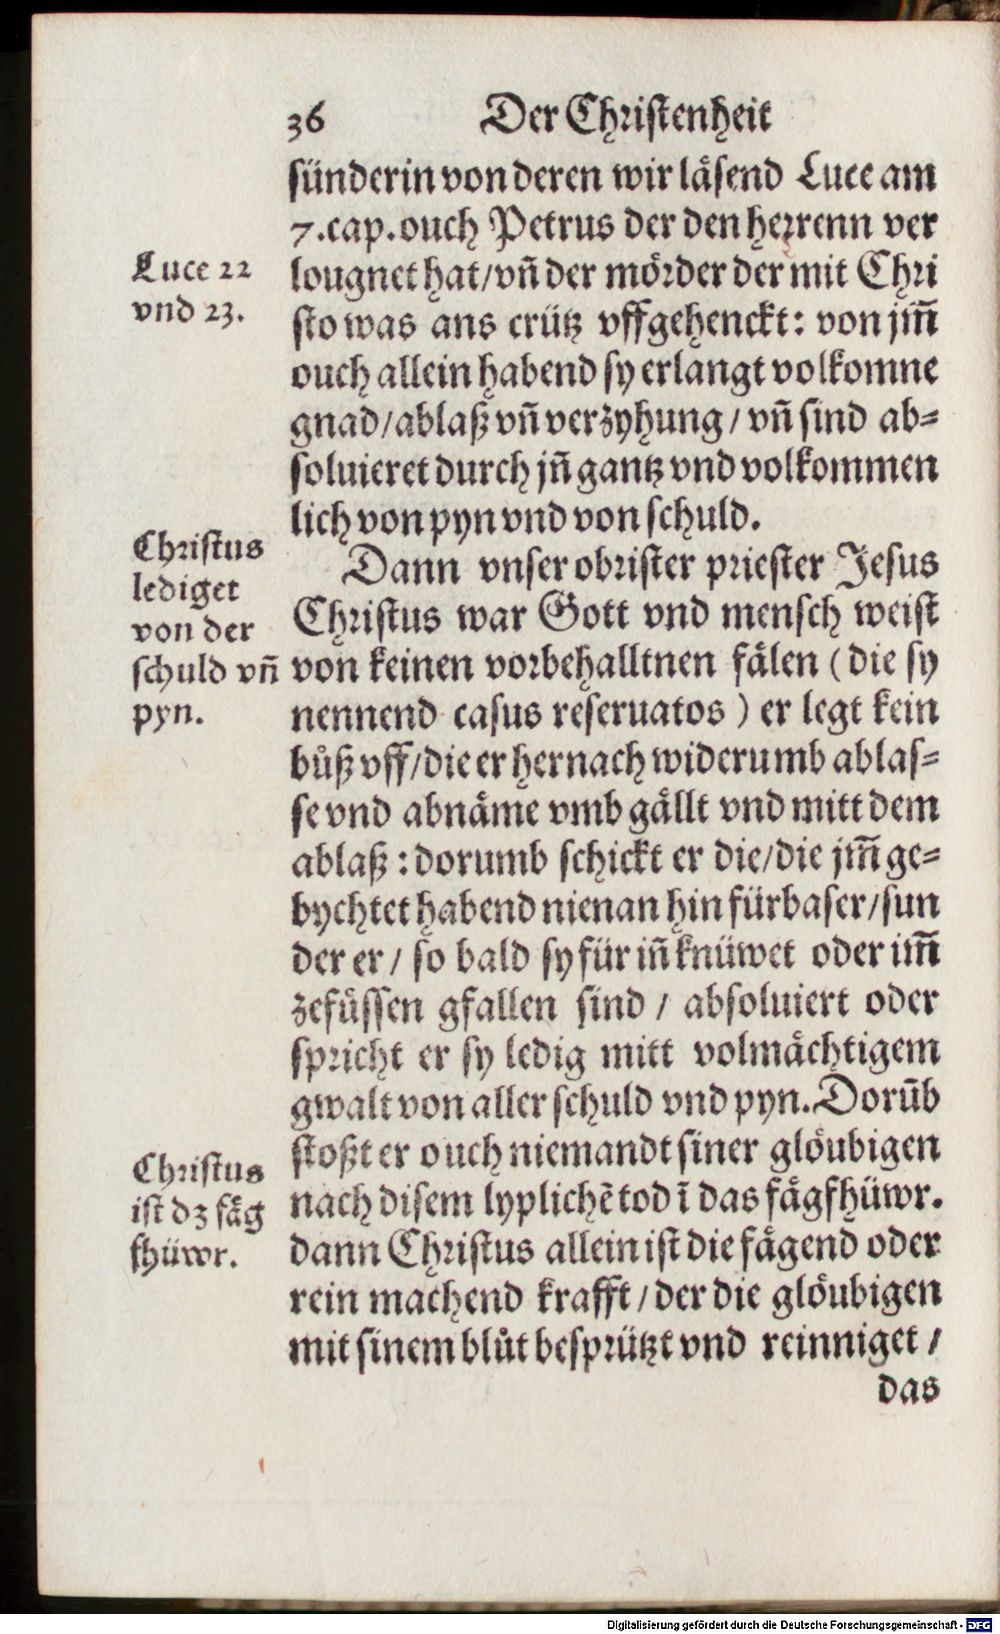 36 Der Christenheit
sünderin von deren wir läsend Luce am
7.cap.ouch Petrus der den herrenn ver
Luce 22
vnd 23.
lougnet hat/vn̄ der mörder der mit Chri
sto was ans crütz vffgehenckt: von jm̄
ouch allein habend sy erlangt volkomne
gnad/ablaß vn̄ verzyhung/vn̄ sind ab⸗
soluieret durch jn̄ gantz vnd volkommen
lich von pyn vnd von schuld.
Christus
lediget
von der
schuld vn̄
pyn.
Dann vnser obrister priester Jesus
Christus war Gott vnd mensch weist
von keinen vorbehalltnen fälen (die sy
nennend casus reseruatos) er legt kein
bůß vff/die er hernach widerumb ablas⸗
se vnd abnäme vmb gällt vnd mitt dem
ablaß: dorumb schickt er die/die jm̄ ge⸗
bychtet habend nienan hin fürbaser/sun
der er/ so bald sy für in̄ knüwet oder im̄
zefüssen gfallen sind/ absoluiert oder
spricht er sy ledig mitt volmächtigem
gwalt von aller schuld vnd pyn. Dorūb
stoßt er ouch niemandt siner glöubigen
Christus
ist dz fäg
fhüwr.
nach disem lyplichē tod ī das fägfhüwr.
dann Christus allein ist die fägend oder
rein machend krafft/der die glöubigen
mit sinem blůt besprützt vnd reinniget/
das
Digitalisierung gefördert durch die Deutsche Forschungsgemeinschaft - DFG